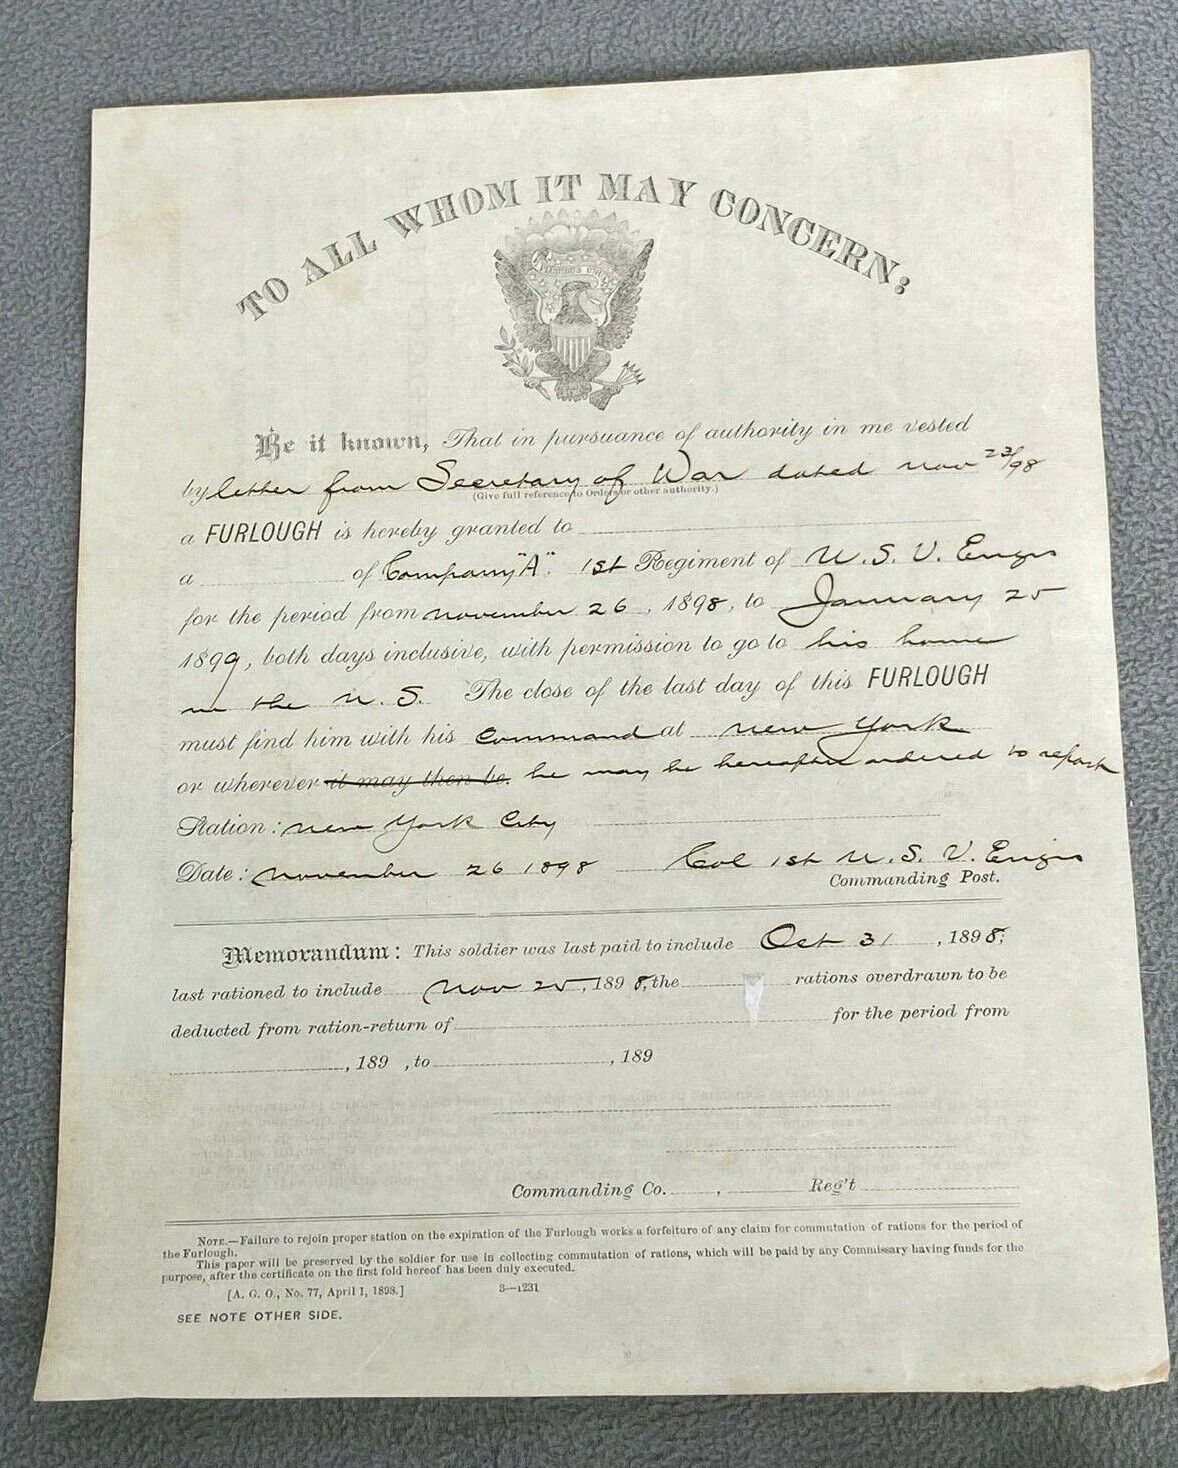 TO ALL WHOM IT MAY CONCERN:
Be it known, That in pursuance of authority in me vested
by letter from Secretary of War dated Nov 23/98
(Give full reference to Orders or other authority.)
a FURLOUGH is hereby granted to
a of Company "A". 1st Regiment of U. S. V. Engrs
for the period from November 26, 1898, to January 25
1899, both days inclusive, with permission to go to his home
in the U. S. The close of the last day of this FURLOUGH
must find him with his Command at New York
or wherever it may then be. he may be hereafter ordered to report
Station: New York City
Date: November 26 1898 Col 1st U. S. V. Engrs
Commanding Post.
Memorandum: This soldier was last paid to include Oct 31, 1898;
last rationed to include Nov 25, 1898, the rations overdrawn to be
deducted from ration-return of for the period from
, 189 , to , 189
Commanding Co. , Reg't
NOTE.—Failure to rejoin proper station on the expiration of the Furlough works a forfeiture of any claim for commutation of rations for the period of
the Furlough.
This paper will be preserved by the soldier for use in collecting commutation of rations, which will be paid by any Commissary having funds for the
purpose, after the certificate on the first fold hereof has been duly executed.
[A. G. O., No. 77, April 1, 1898.] 3—1231
SEE NOTE OTHER SIDE.